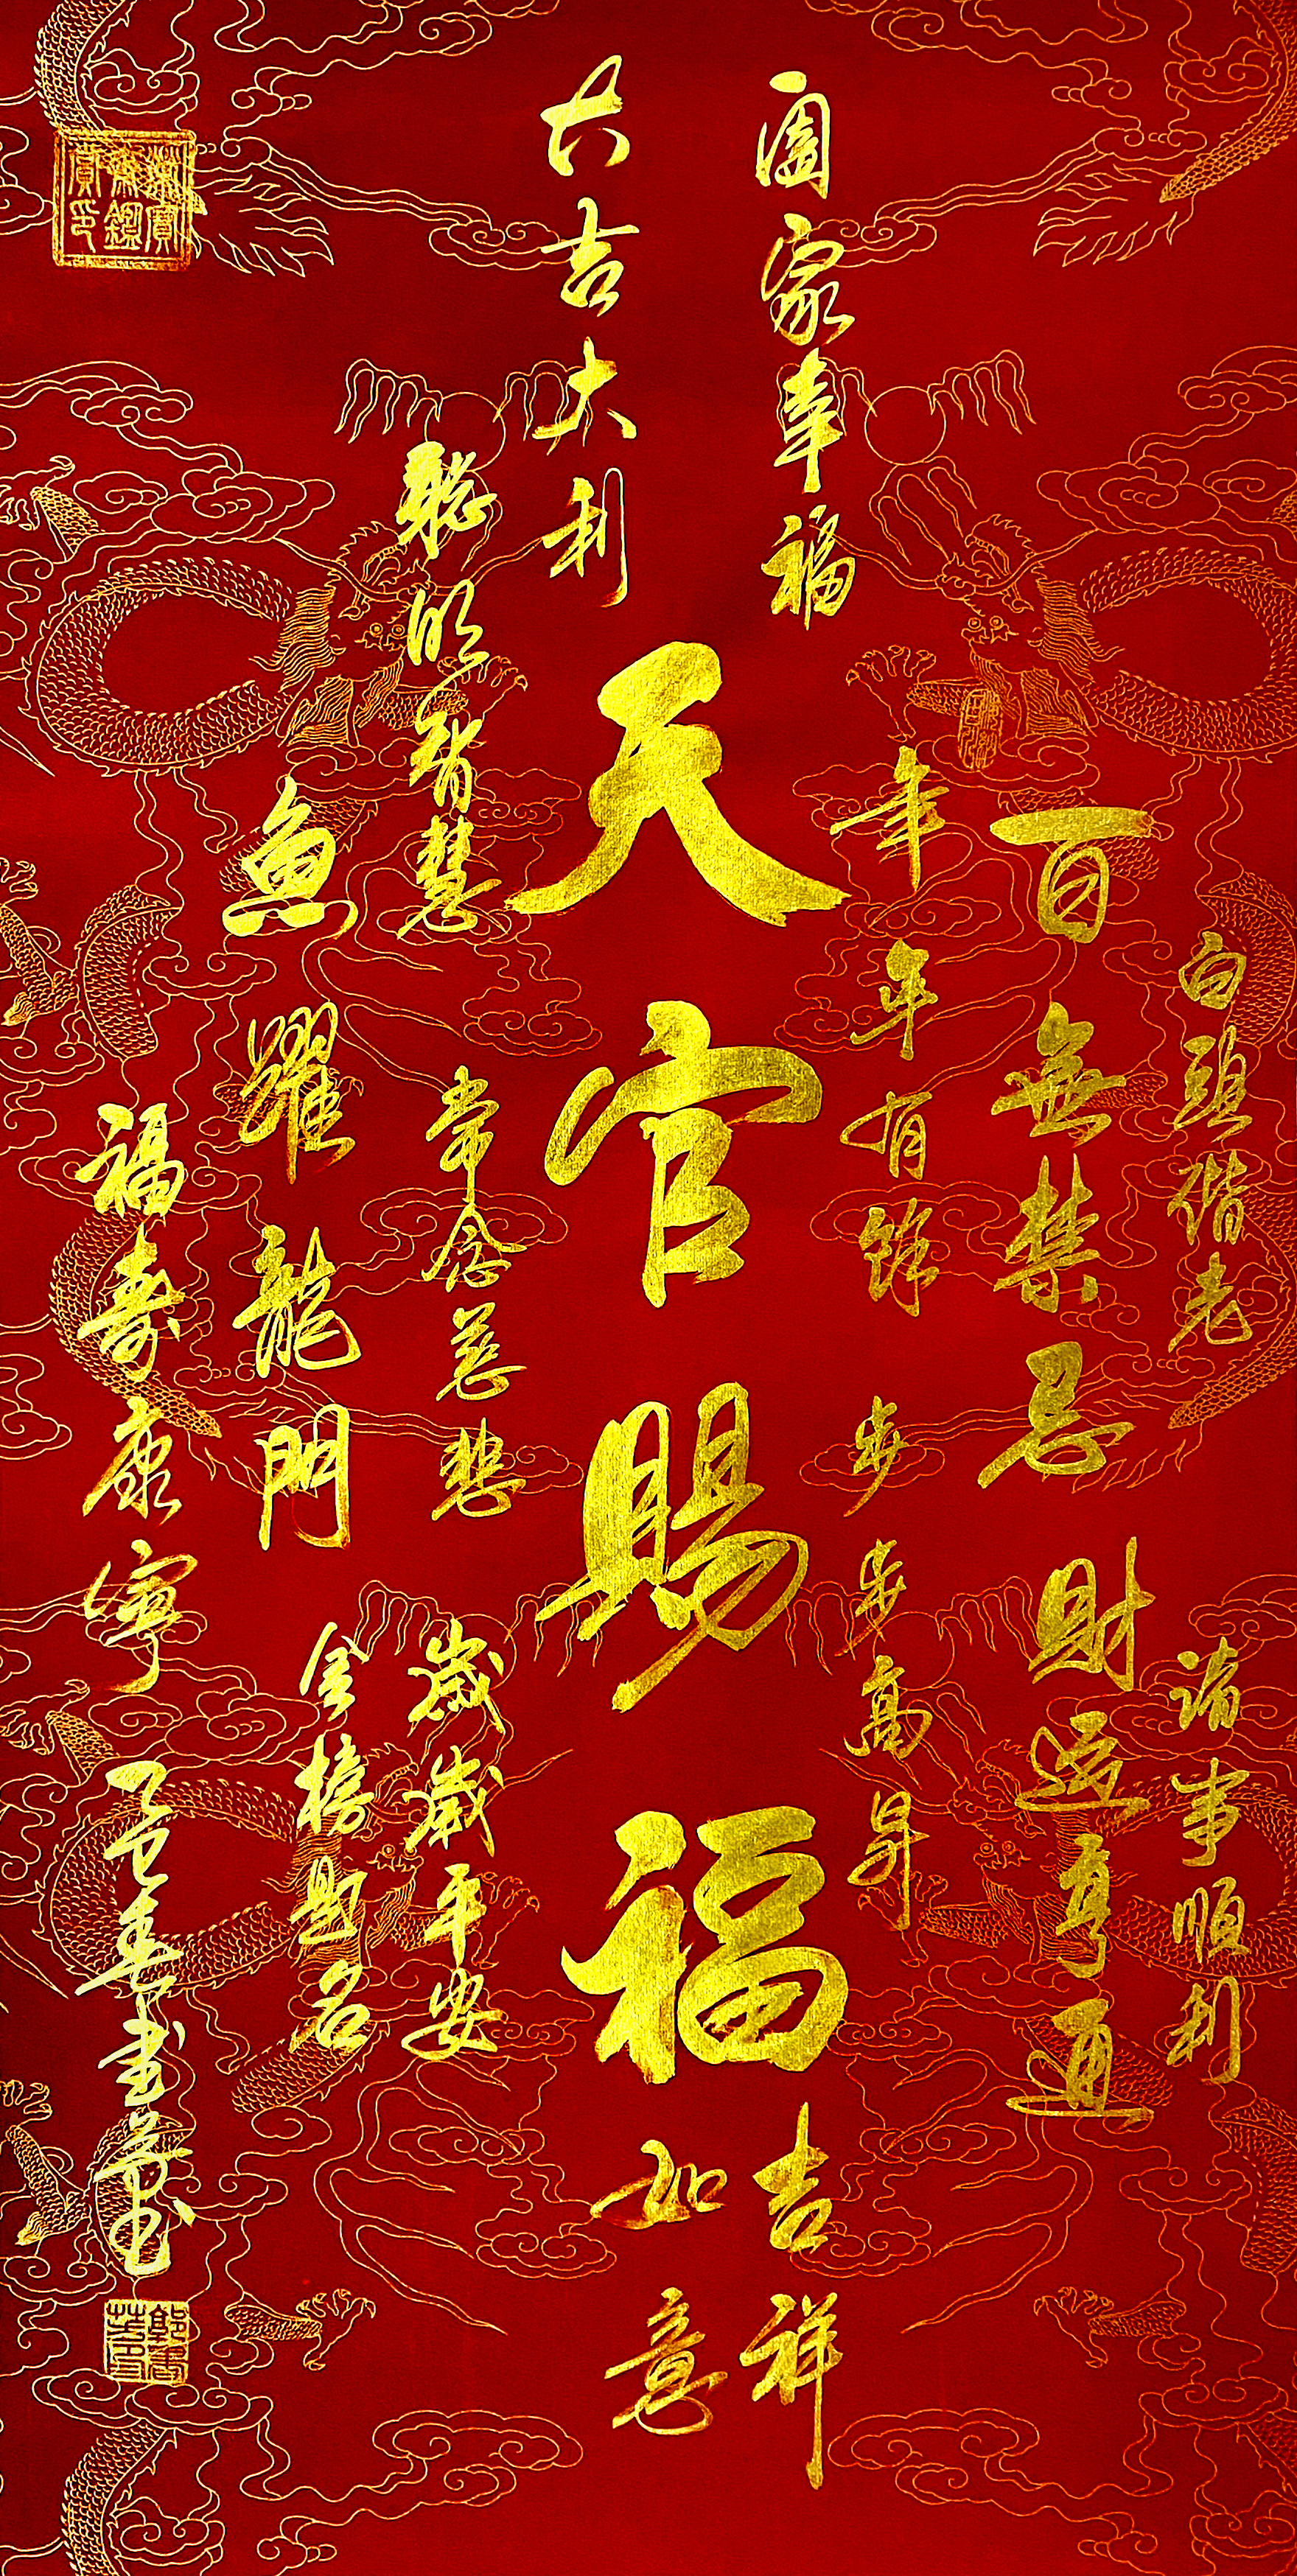 白頭偕老
諸事順利
百無禁忌
財運亨通
年年有餘
步步高昇
闔家幸福
天官賜福
吉祥
如意
大吉大利
聰明智慧
常念慈悲
歲歲平安
魚躍龍門
金榜題名
福壽康寧